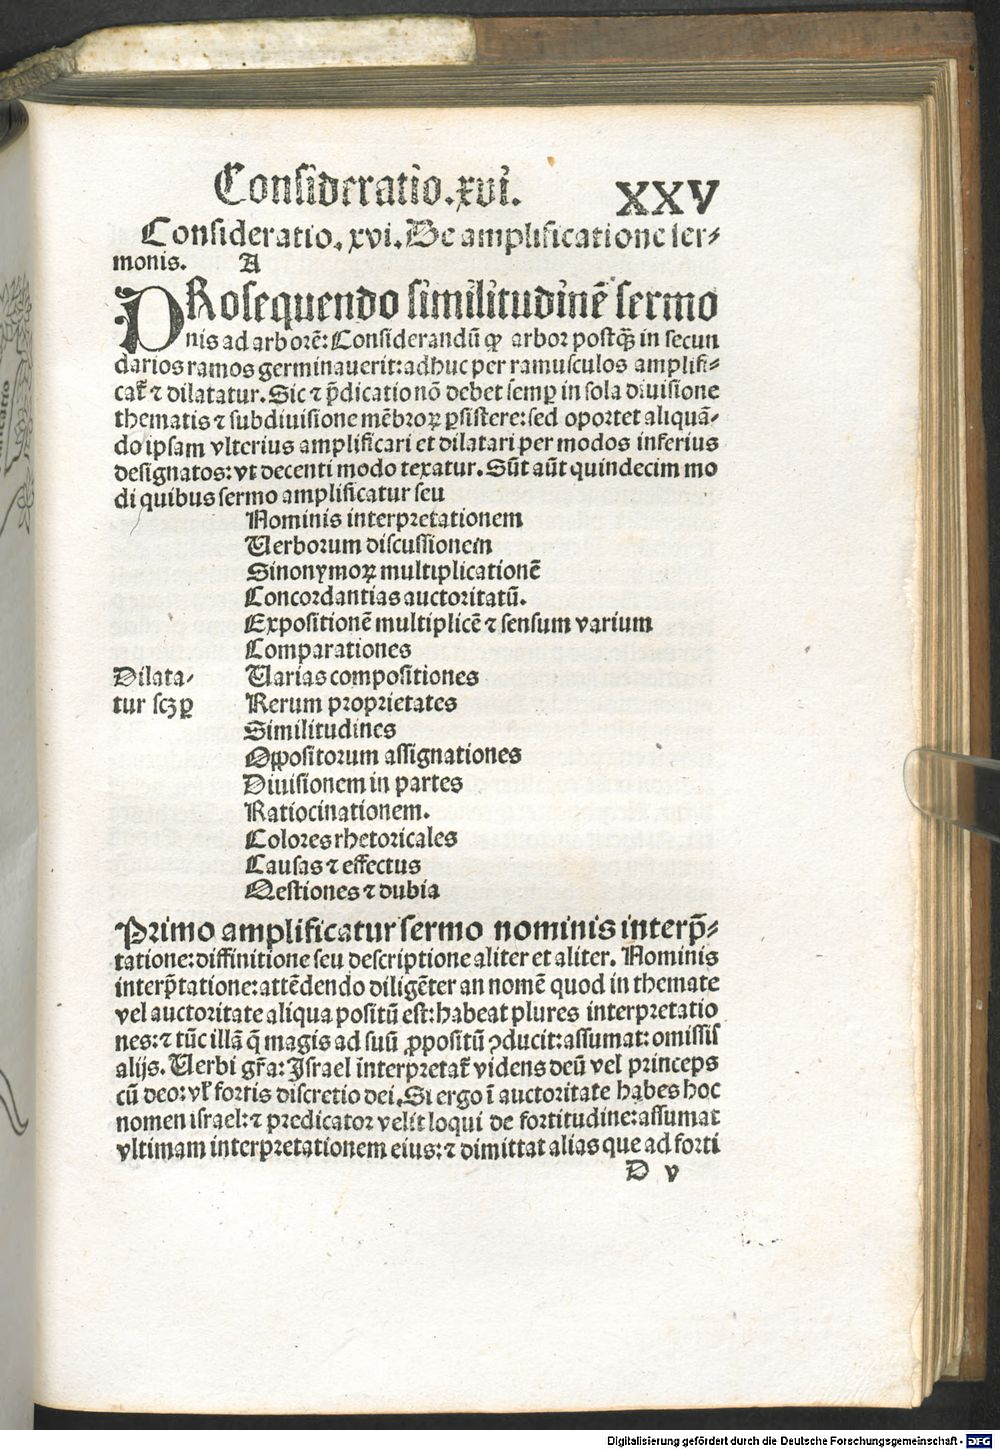 Consideratio.xvi.
XXV
Consideratio. xvi. De amplificatione ser⸗
monis. A
PRosequendo similitudinē sermo
nis ad arborē: Considerandū ꝙ arbor postꝗ̃ in secun
darios ramos germinauerit: adhuc per ramusculos amplifi⸗
cat̄ ⁊ dilatatur. Sic ⁊ p̄dicatio nō debet semꝑ in sola diuisione
thematis ⁊ subdiuisione mēbroꝝ ꝑsistere: sed oportet aliquā⸗
do ipsam vlterius amplificari et dilatari per modos inferius
designatos: vt decenti modo texatur. Sūt aūt quindecim mo
di quibus sermo amplificatur seu
Nominis interpretationem
Uerborum discussionem
Sinonymoꝝ multiplicationē
Concordantias auctoritatū.
Expositionē multiplicē ⁊ sensum varium
Comparationes
Dilata⸗
tur scꝫ ꝑ
Uarias compositiones
Rerum proprietates
Similitudines
Oppositorum assignationes
Diuisionem in partes
Ratiocinationem.
Colores rhetoricales
Causas ⁊ effectus
Qestiones ⁊ dubia
Primo amplificatur sermo nominis interp̄⸗
tatione: diffinitione seu descriptione aliter et aliter. Nominis
interp̄tatione: attēdendo diligēter an nomē quod in themate
vel auctoritate aliqua positū est: habeat plures interpretatio
nes: ⁊ tūc illā q̄ magis ad suū ꝓpositū ꝯducit: assumat: omissis
alijs. Uerbi gr̄a: Israel interpretat̄ videns deū vel princeps
cū deo: vl̓ fortis discretio dei. Si ergo ī auctoritate habes hoc
nomen israel: ⁊ predicator velit loqui de fortitudine: assumat
vltimam interpretationem eius: ⁊ dimittat alias que ad forti
D v
Digitalisierung gefördert durch die Deutsche Forschungsgemeinschaft - DFG